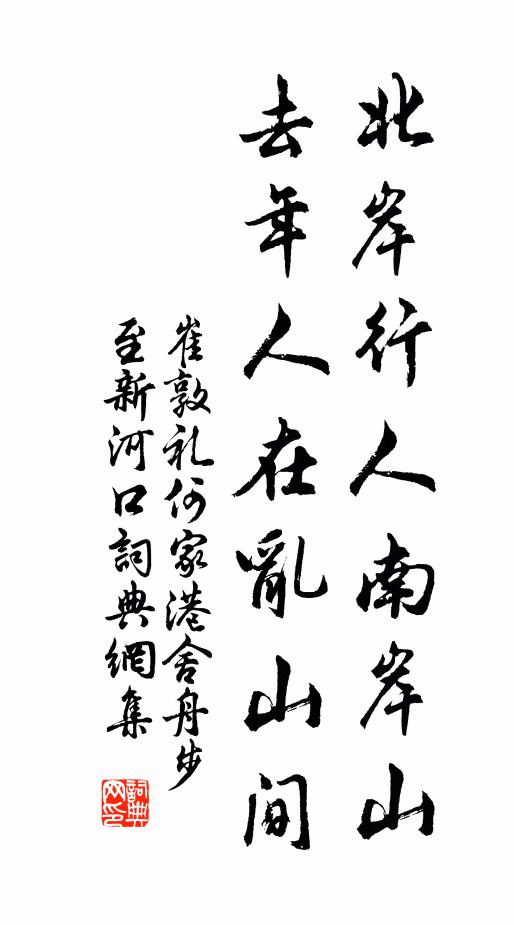 北岸行人南岸山
去年人在亂山间
崔敦礼何家港舍舟步
至新河口詞典網集
詞典
网印